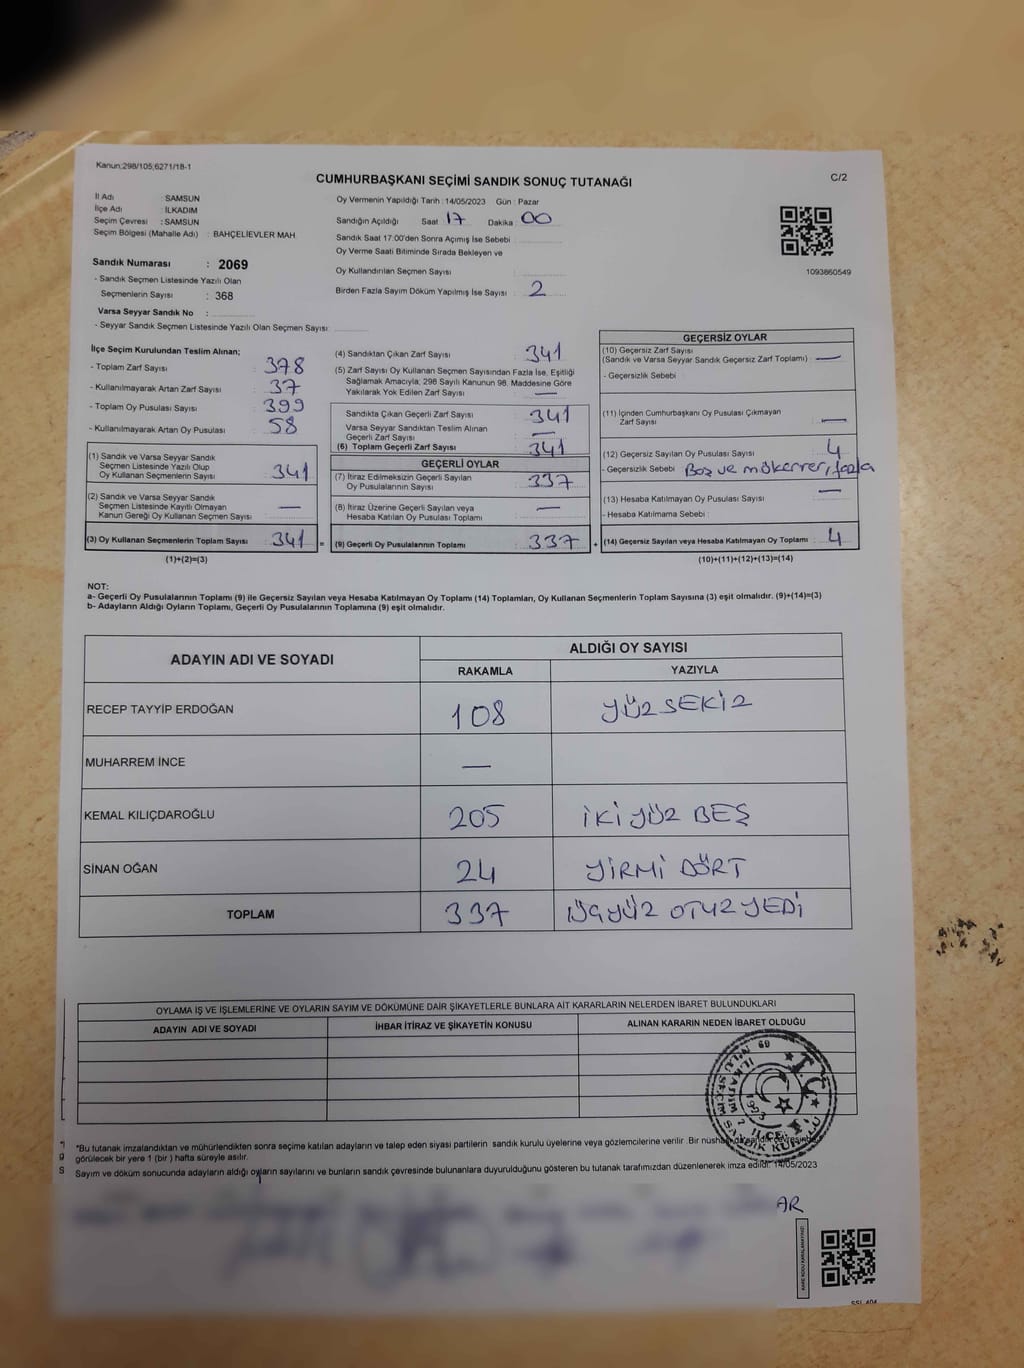 Kanun;298/105;6271/18-1
CUMHURBAŞKANI SEÇİMİ SANDIK SONUÇ TUTANAĞI
C/2
İl Adı : SAMSUN
İlçe Adı : İLKADIM
Seçim Çevresi : SAMSUN
Seçim Bölgesi (Mahalle Adı) : BAHÇELİEVLER MAH.
Oy Vermenin Yapıldığı Tarih : 14/05/2023 Gün : Pazar
Sandığın Açıldığı Saat 17 Dakika : 00
Sandık Saat 17:00'den Sonra Açımış İse Sebebi
Oy Verme Saati Bitiminde Sırada Bekleyen ve
Oy Kullandırılan Seçmen Sayısı :
Birden Fazla Sayım Döküm Yapılmış İse Sayısı : 2
1093860549
Sandık Numarası : 2069
- Sandık Seçmen Listesinde Yazılı Olan
Seçmenlerin Sayısı : 368
Varsa Seyyar Sandık No :
- Seyyar Sandık Seçmen Listesinde Yazılı Olan Seçmen Sayısı:
İlçe Seçim Kurulundan Teslim Alınan;
- Toplam Zarf Sayısı : 378
- Kullanılmayarak Artan Zarf Sayısı : 37
- Toplam Oy Pusulası Sayısı : 399
- Kullanılmayarak Artan Oy Pusulası : 58
(1) Sandık ve Varsa Seyyar Sandık
Seçmen Listesinde Yazılı Olup
Oy Kullanan Seçmenlerin Sayısı : 341
(2) Sandık ve Varsa Seyyar Sandık
Seçmen Listesinde Kayıtlı Olmayan
Kanun Gereği Oy Kullanan Seçmen Sayısı : —
(3) Oy Kullanan Seçmenlerin Toplam Sayısı : 341 =
(1)+(2)=(3)
(4) Sandıktan Çıkan Zarf Sayısı : 341
(5) Zarf Sayısı Oy Kullanan Seçmen Sayısından Fazla İse, Eşitliği
Sağlamak Amacıyla; 298 Sayılı Kanunun 98. Maddesine Göre
Yakılarak Yok Edilen Zarf Sayısı : —
Sandıkta Çıkan Geçerli Zarf Sayısı : 341
Varsa Seyyar Sandıktan Teslim Alınan
Geçerli Zarf Sayısı : —
(6) Toplam Geçerli Zarf Sayısı : 341
GEÇERLİ OYLAR
(7) İtiraz Edilmeksizin Geçerli Sayılan
Oy Pusulalarının Sayısı : 337
(8) İtiraz Üzerine Geçerli Sayılan veya
Hesaba Katılan Oy Pusulası Toplamı : —
(9) Geçerli Oy Pusulalarının Toplamı : 337 +
GEÇERSİZ OYLAR
(10) Geçersiz Zarf Sayısı
(Sandık ve Varsa Seyyar Sandık Geçersiz Zarf Toplamı) : —
- Geçersizlik Sebebi :
(11) İçinden Cumhurbaşkanı Oy Pusulası Çıkmayan
Zarf Sayısı : —
(12) Geçersiz Sayılan Oy Pusulası Sayısı : 4
- Geçersizlik Sebebi : Boş ve mökerrer, fazla
(13) Hesaba Katılmayan Oy Pusulası Sayısı : —
- Hesaba Katılmama Sebebi :
(14) Geçersiz Sayılan veya Hesaba Katılmayan Oy Toplamı : 4
(10)+(11)+(12)+(13)=(14)
NOT:
a- Geçerli Oy Pusulalarının Toplamı (9) ile Geçersiz Sayılan veya Hesaba Katılmayan Oy Toplamı (14) Toplamları, Oy Kullanan Seçmenlerin Toplam Sayısına (3) eşit olmalıdır. (9)+(14)=(3)
b- Adayların Aldığı Oyların Toplamı, Geçerli Oy Pusulalarının Toplamına (9) eşit olmalıdır.
ADAYIN ADI VE SOYADI ALDIĞI OY SAYISI
RAKAMLA YAZIYLA
RECEP TAYYİP ERDOĞAN 108 YÜZ SEKİZ
MUHARREM İNCE —
KEMAL KILIÇDAROĞLU 205 İKİ YÜZ BEŞ
SİNAN OĞAN 24 YİRMİ DÖRT
TOPLAM 337 ÜÇ YÜZ OTUZ YEDİ
OYLAMA İŞ VE İŞLEMLERİNE VE OYLARIN SAYIM VE DÖKÜMÜNE DAİR ŞİKAYETLERLE BUNLARA AİT KARARLARIN NELERDEN İBARET BULUNDUKLARI
ADAYIN ADI VE SOYADI İHBAR İTİRAZ VE ŞİKAYETİN KONUSU ALINAN KARARIN NEDEN İBARET OLDUĞU
T.C.
*Bu tutanak imzalandıktan ve mühürlendikten sonra seçime katılan adayların ve talep eden siyasi partilerin sandık kurulu üyelerine veya gözlemcilerine verilir .Bir nüshası da sandık çevresinde
görülecek bir yere 1 (bir ) hafta süreyle asılır.
Sayım ve döküm sonucunda adayların aldığı oyların sayılarını ve bunların sandık çevresinde bulunanlara duyurulduğunu gösteren bu tutanak tarafımızdan düzenlenerek imza edildi. 14/05/2023
AR